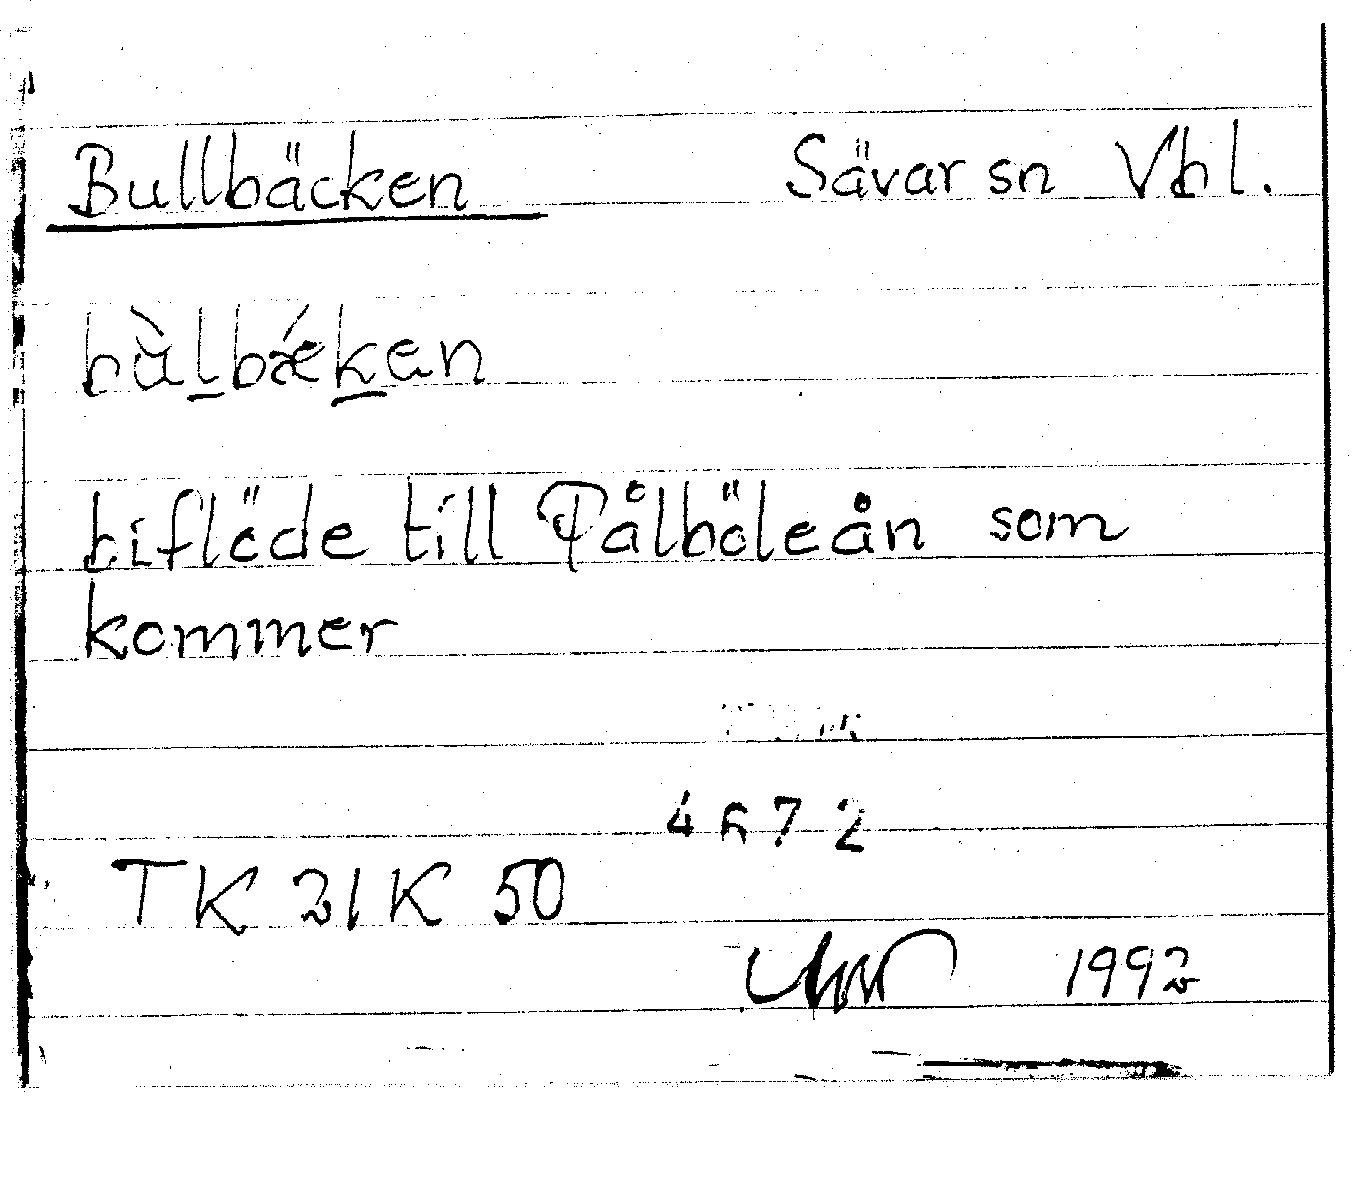 Bullbäcken Sävar sn Vbl.
bùlbǽkan
biflöde till Pålböleån som
kommer
4672
TK 21K 50
1992